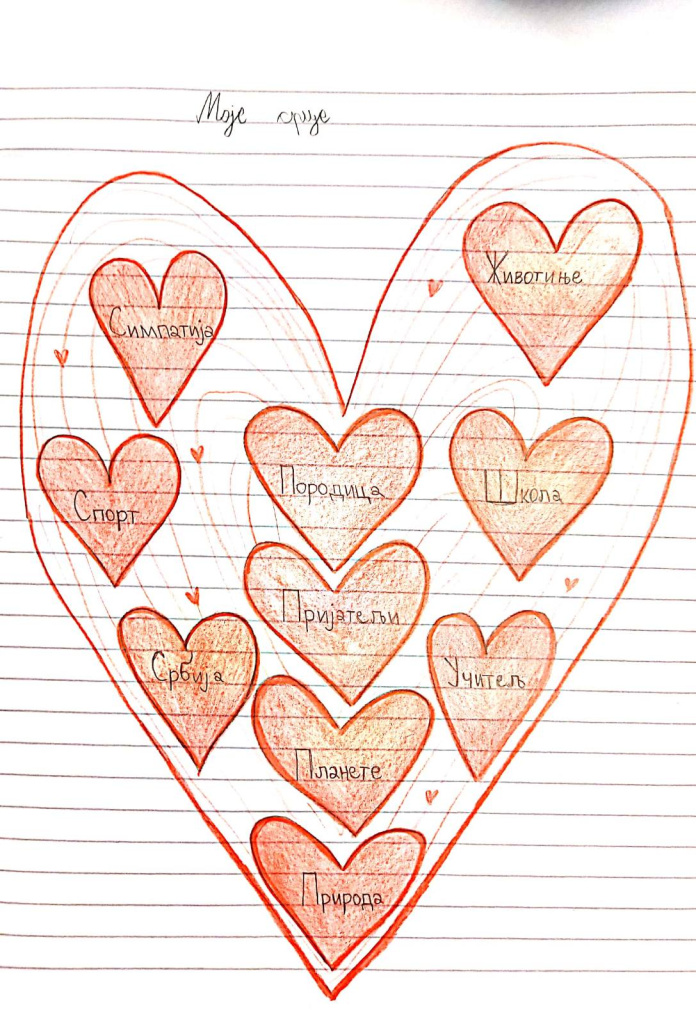 Моје срце
Животиње
Симпатија
Породица
Школа
Спорт
Пријатељи
Србија
Учитељ
Планете
Природа